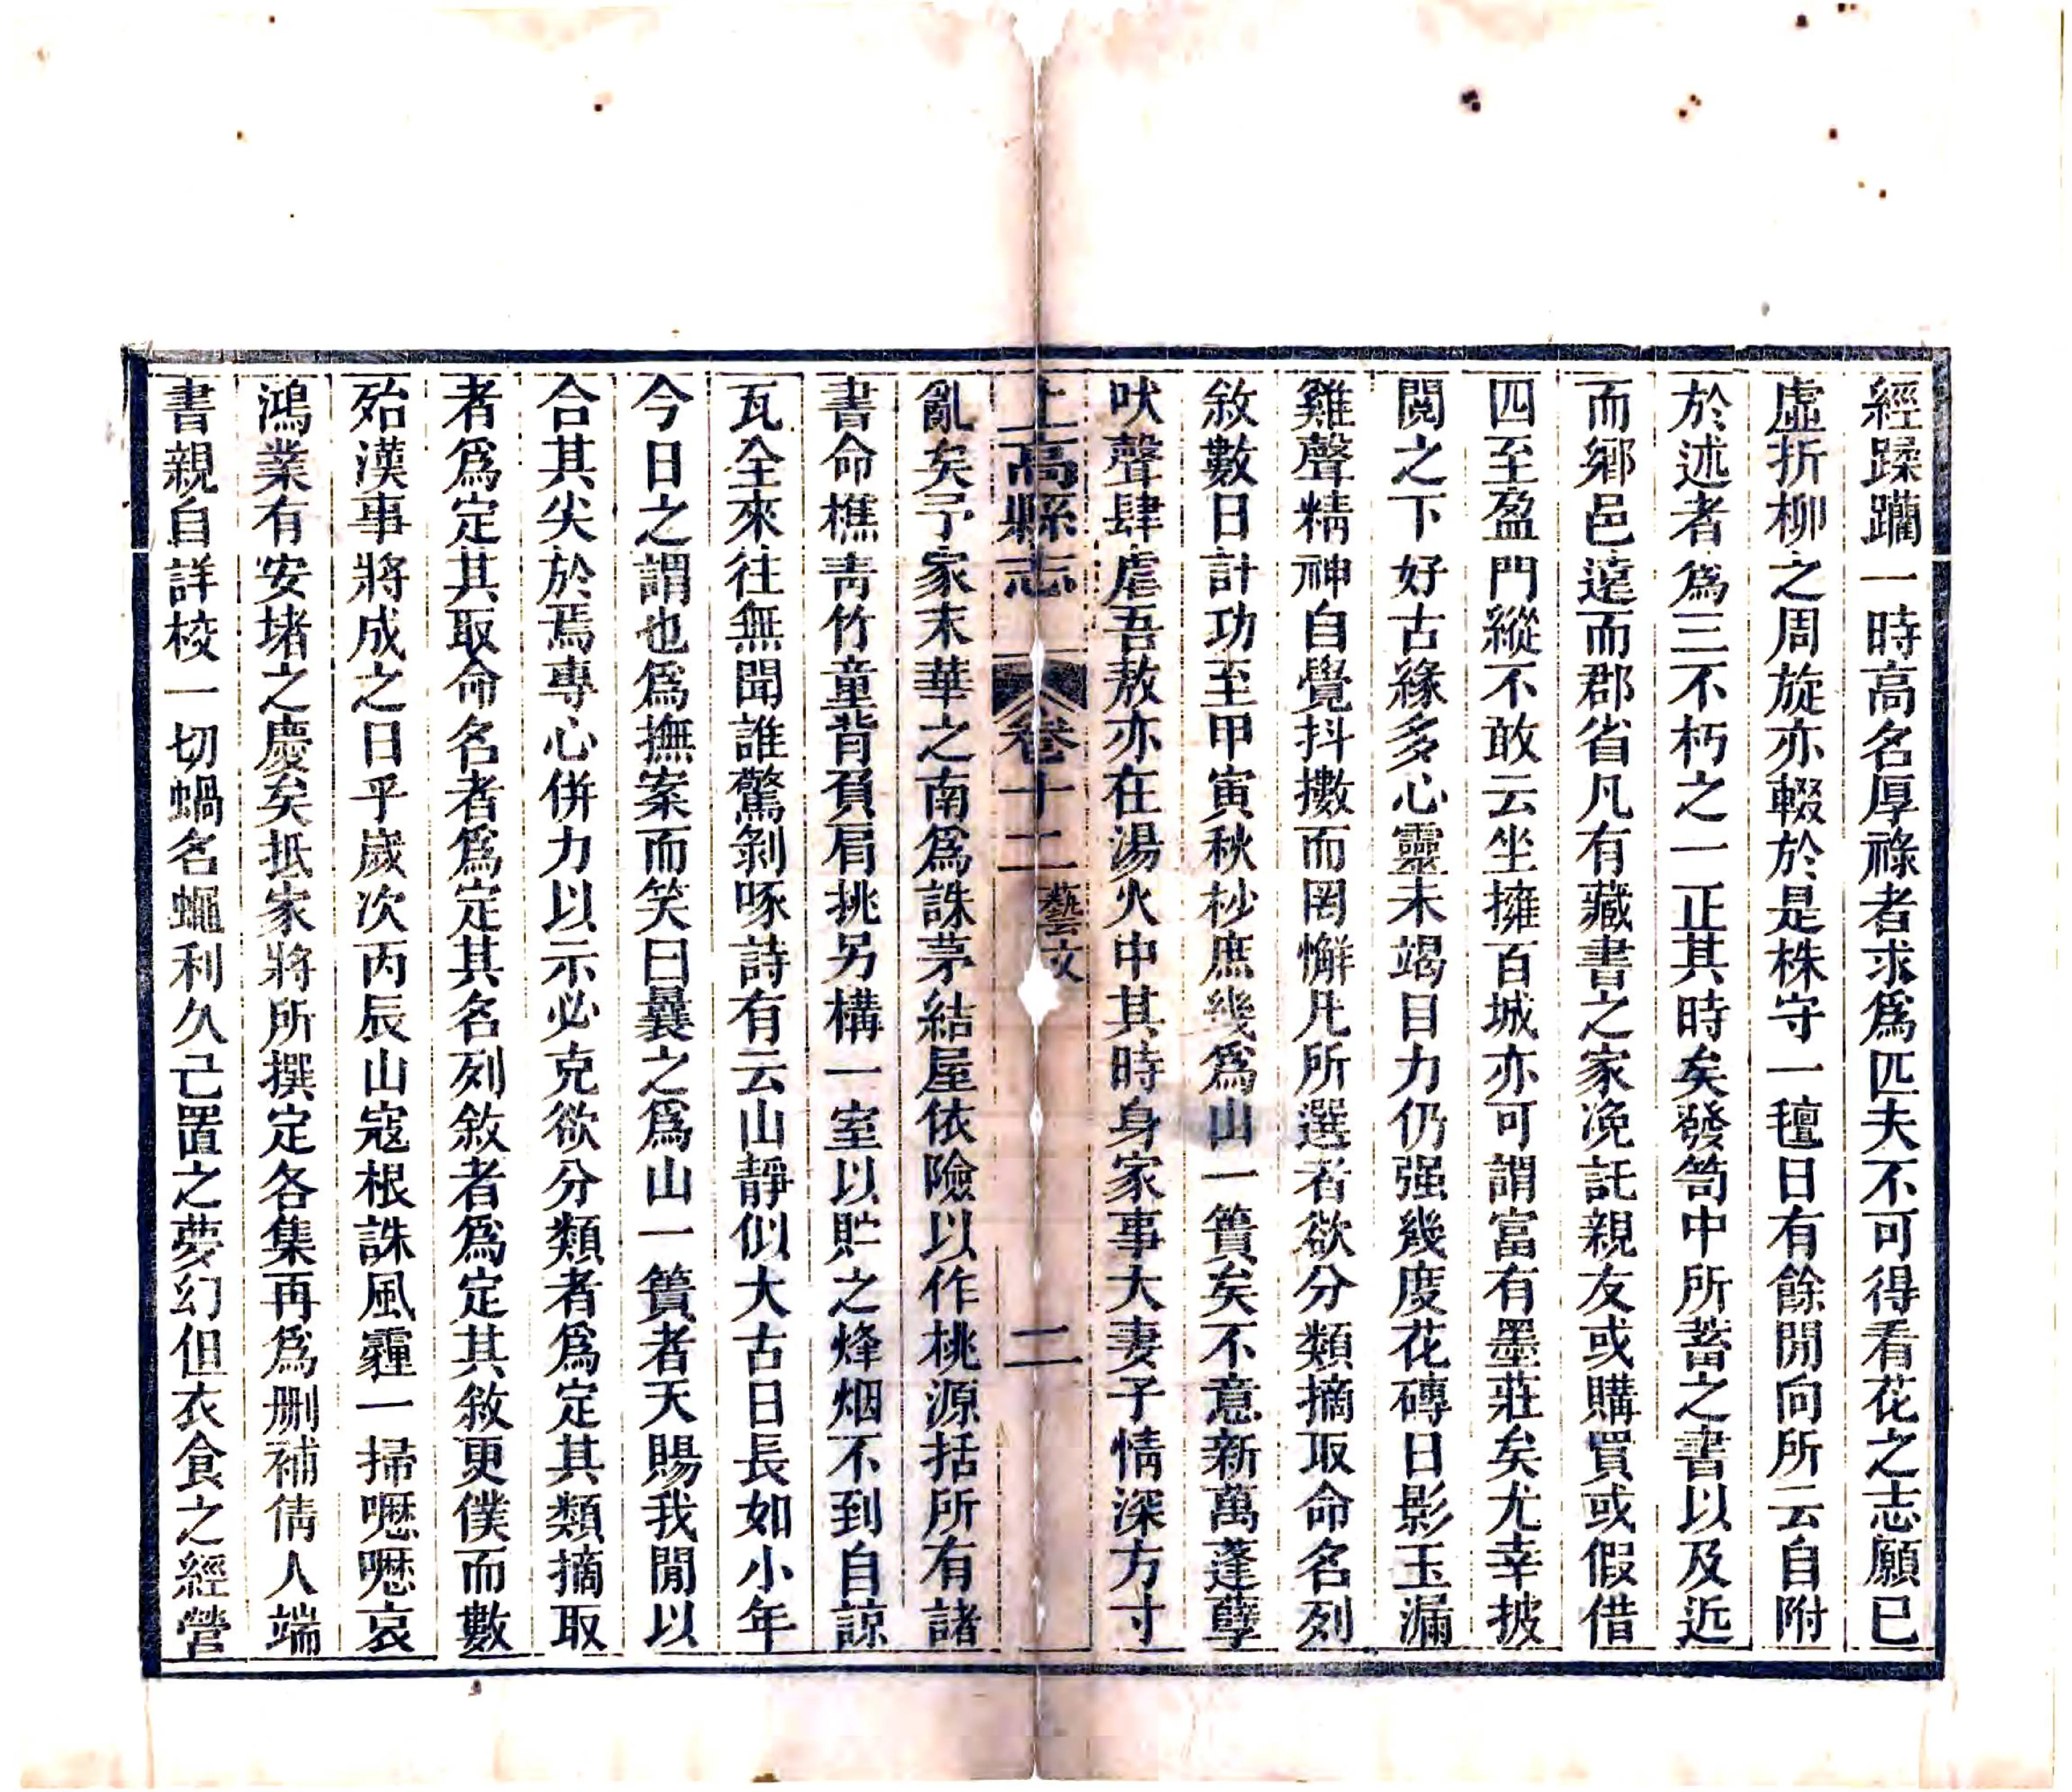 經蹂躪一時高名厚祿者求爲匹夫不可得看花之志願已
虛折柳之周旋亦輟於是株守一氊日有餘閒向所云自附
於述者爲三不朽之一正其時矣發笥中所蓄之書以及近
而鄉邑遠而郡省凡有藏書之家浼託親友或購買或假借
四至盈門縱不敢云坐擁百城亦可謂富有墨莊矣尤幸披
閱之下好古緣多心靈未竭目力仍强幾度花磚日影玉漏
雞聲精神自覺抖擻而罔懈凡所選者欲分類摘取命名列
敘數日計功至甲寅秋杪庶幾爲山一簣矣不意新萬蓬孽
吠聲肆虐吾敖亦在湯火中其時身家事大妻子情深方寸
上高縣志 卷十二 藝文 二
亂矣予家末華之南爲誅茅結屋依險以作桃源括所有諸
書命樵靑竹童背負肩挑另構一室以貯之烽烟不到自諒
瓦全來往無聞誰驚剝啄詩有云山靜似大古日長如小年
今日之謂也爲撫案而笑曰曩之爲山一簣者天賜我閒以
合其尖於焉專心併力以示必克欲分類者爲定其類摘取
者爲定其取命名者爲定其名列敘者爲定其敘更僕而數
殆漢事將成之日乎歲次丙辰山寇根誅風霾一掃嚦嚦哀
鴻業有安堵之慶矣抵家將所撰定各集再爲删補倩人端
書親自詳校一切蝸名蠅利久已置之夢幻但衣食之經營